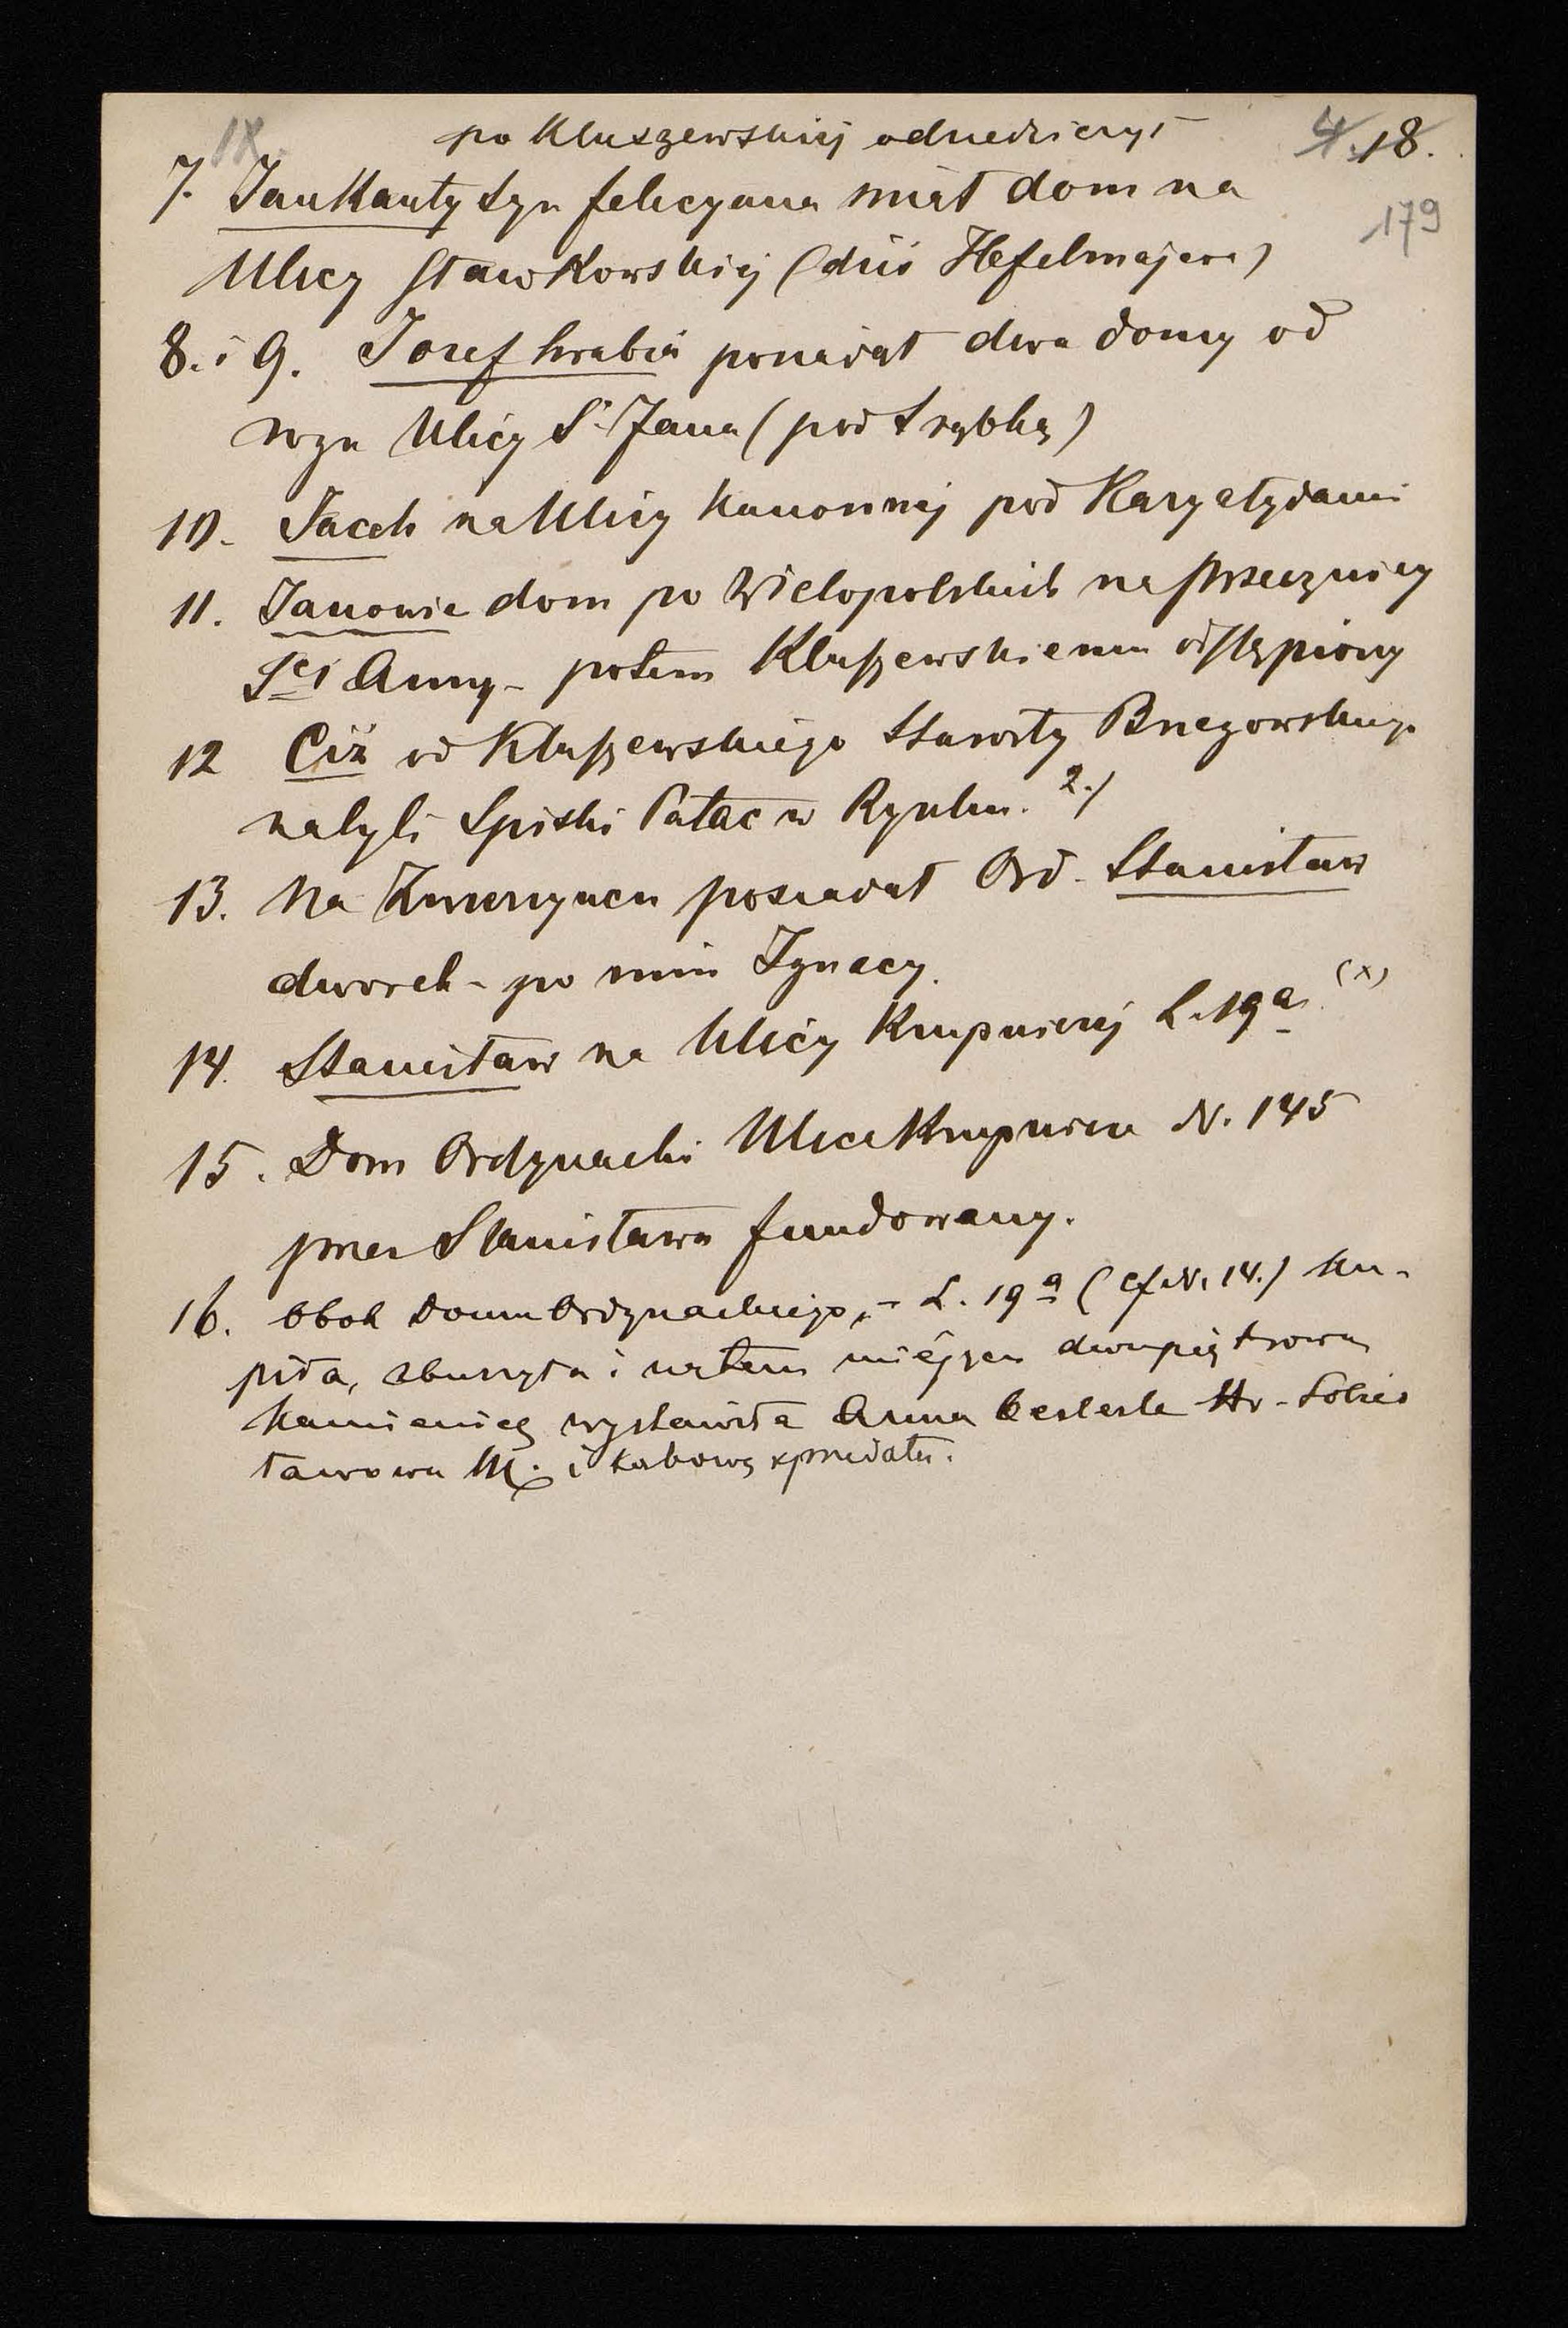 IX
po Kluszewskiej odziedziczył
4. 18.
179
7. Jan Kanty syn felicyana miał dom na
Ulicy Sławkowskiej (dziś Hefelmajera)
8. i 9. Jozef hrabia posiadał dwa domy od
rogu Ulicy Sº Jana (pod rybką)
10. Jacek na Ulicy Kanonnej pod Karyatydami
11. Janowie dom po Wielopolskich na przecznicy
Sej Anny - potem Kluszewskiemu odstąpiony
12 Ciż od Kluszewskiego Starosty Brzegowskiego
nabyli Spiski Pałac w Rynku. 2.)
13. Na Zwierzyncu posiadał Ord. Stanisław
dworek - po nim Ignacy.
14. Stanisław na Ulicy Krupniczej L. 19a (x)
15. Dom Ordynacki Ulica Krupnicza N. 145
przez Stanisława fundowany.
16. Obok Domu Ordynackiego, - L. 19a (cf. N. 14.) ku-
piła, zburzyła i na tem miejscu dwupiętrową
Kamienicę wystawiła Anna Hr.
ławowa M. i sprzedała.